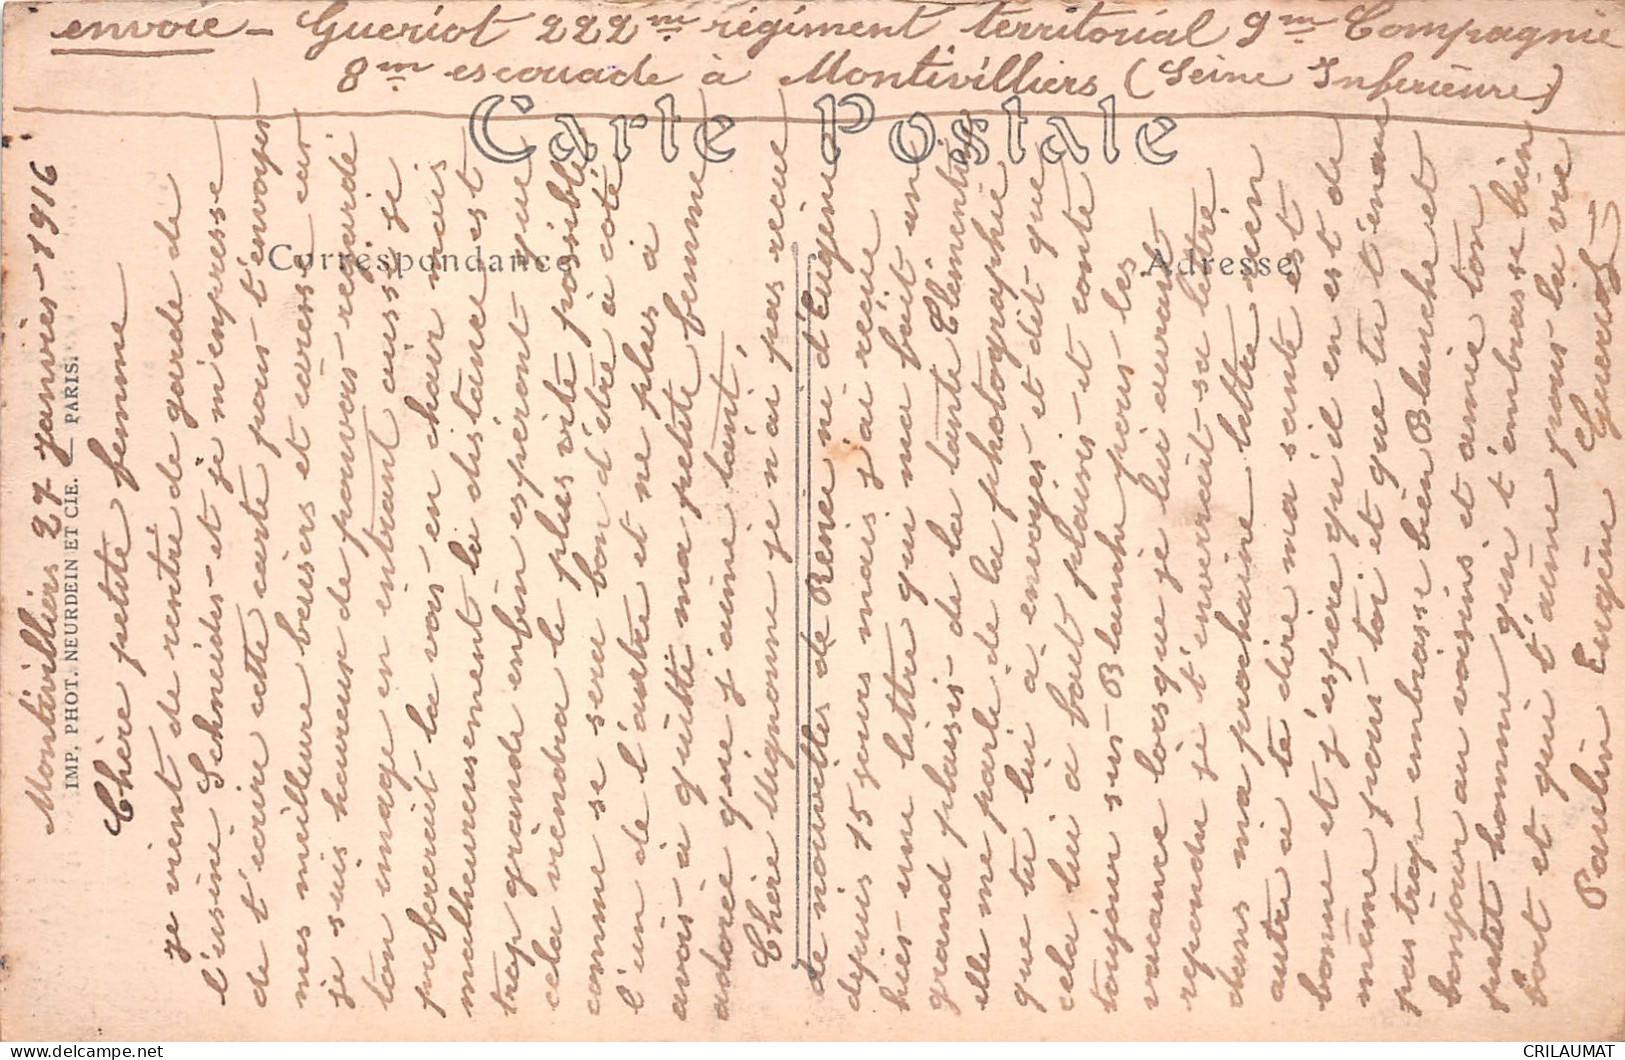 envoie – Gueriot 222me régiment territorial 9me Compagnie
8me escouade à Montivilliers (Seine Inferieure)
Carte Postale
Correspondance
Adresse
IMP. PHOT. NEURDEIN ET CIE. – PARIS.
Montivilliers 27 janvier 1916
Chère petite femme
je vient de rentré de garde de
l'usine Schneider et je m'empresse
de t'ecrire cette carte pour t'envoyer
mes meilleure baisers et caresse car
je suis heureux de pouvoir regardé
ton image en entrant aussi je
prefererait la voir en chair mais
malheureusement la distance est
trop grande enfin esperont que
cela viendra le plus vite possible
comme se sera bon d'être a coté
l'un de l'autre et ne plus a
avoir à quitté ma petite femme
adoré que j'aime tant,
Chère Mignonne je n'ai pas recue
de nouvelles de Rene ni d'Eugenie
depuis 15 jours mais j'ai recue
hier une lettre qui ma fait un
grand plaisir de la tante Clémentine
elle me parle de la photographie
que tu lui à envoyer et dit que
cela lui à fait plaisir et conte
toujour sur Blanche pour les
vacance lorsque je lui aurait
repondu je t'enverrait sa lettre
dans ma prochaine lettre rien
autre a te dire ma santé est
bonne et j'espere qu'il en est de
même pour toi et que tu t'ennuie
pas trop embrasse bien Blanche et
bonjour au voisins et amie ton
petit homme qui t'embrasse bien
fort et qui t'aime pour la vie
Paulin Eugène Gueriot
CRILAUMAT